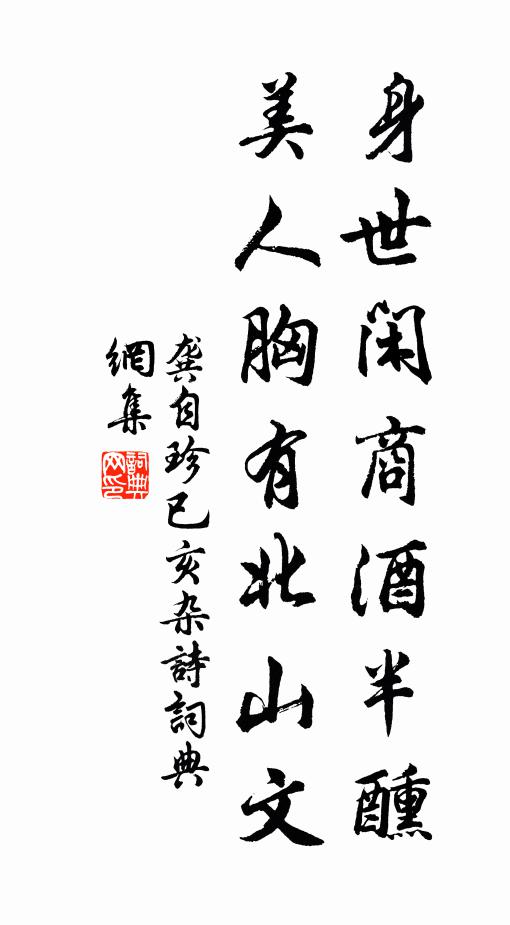 身世閑商酒半醺
美人胸有北山文
龔自珍已亥杂詩詞典
網集
詞典網印